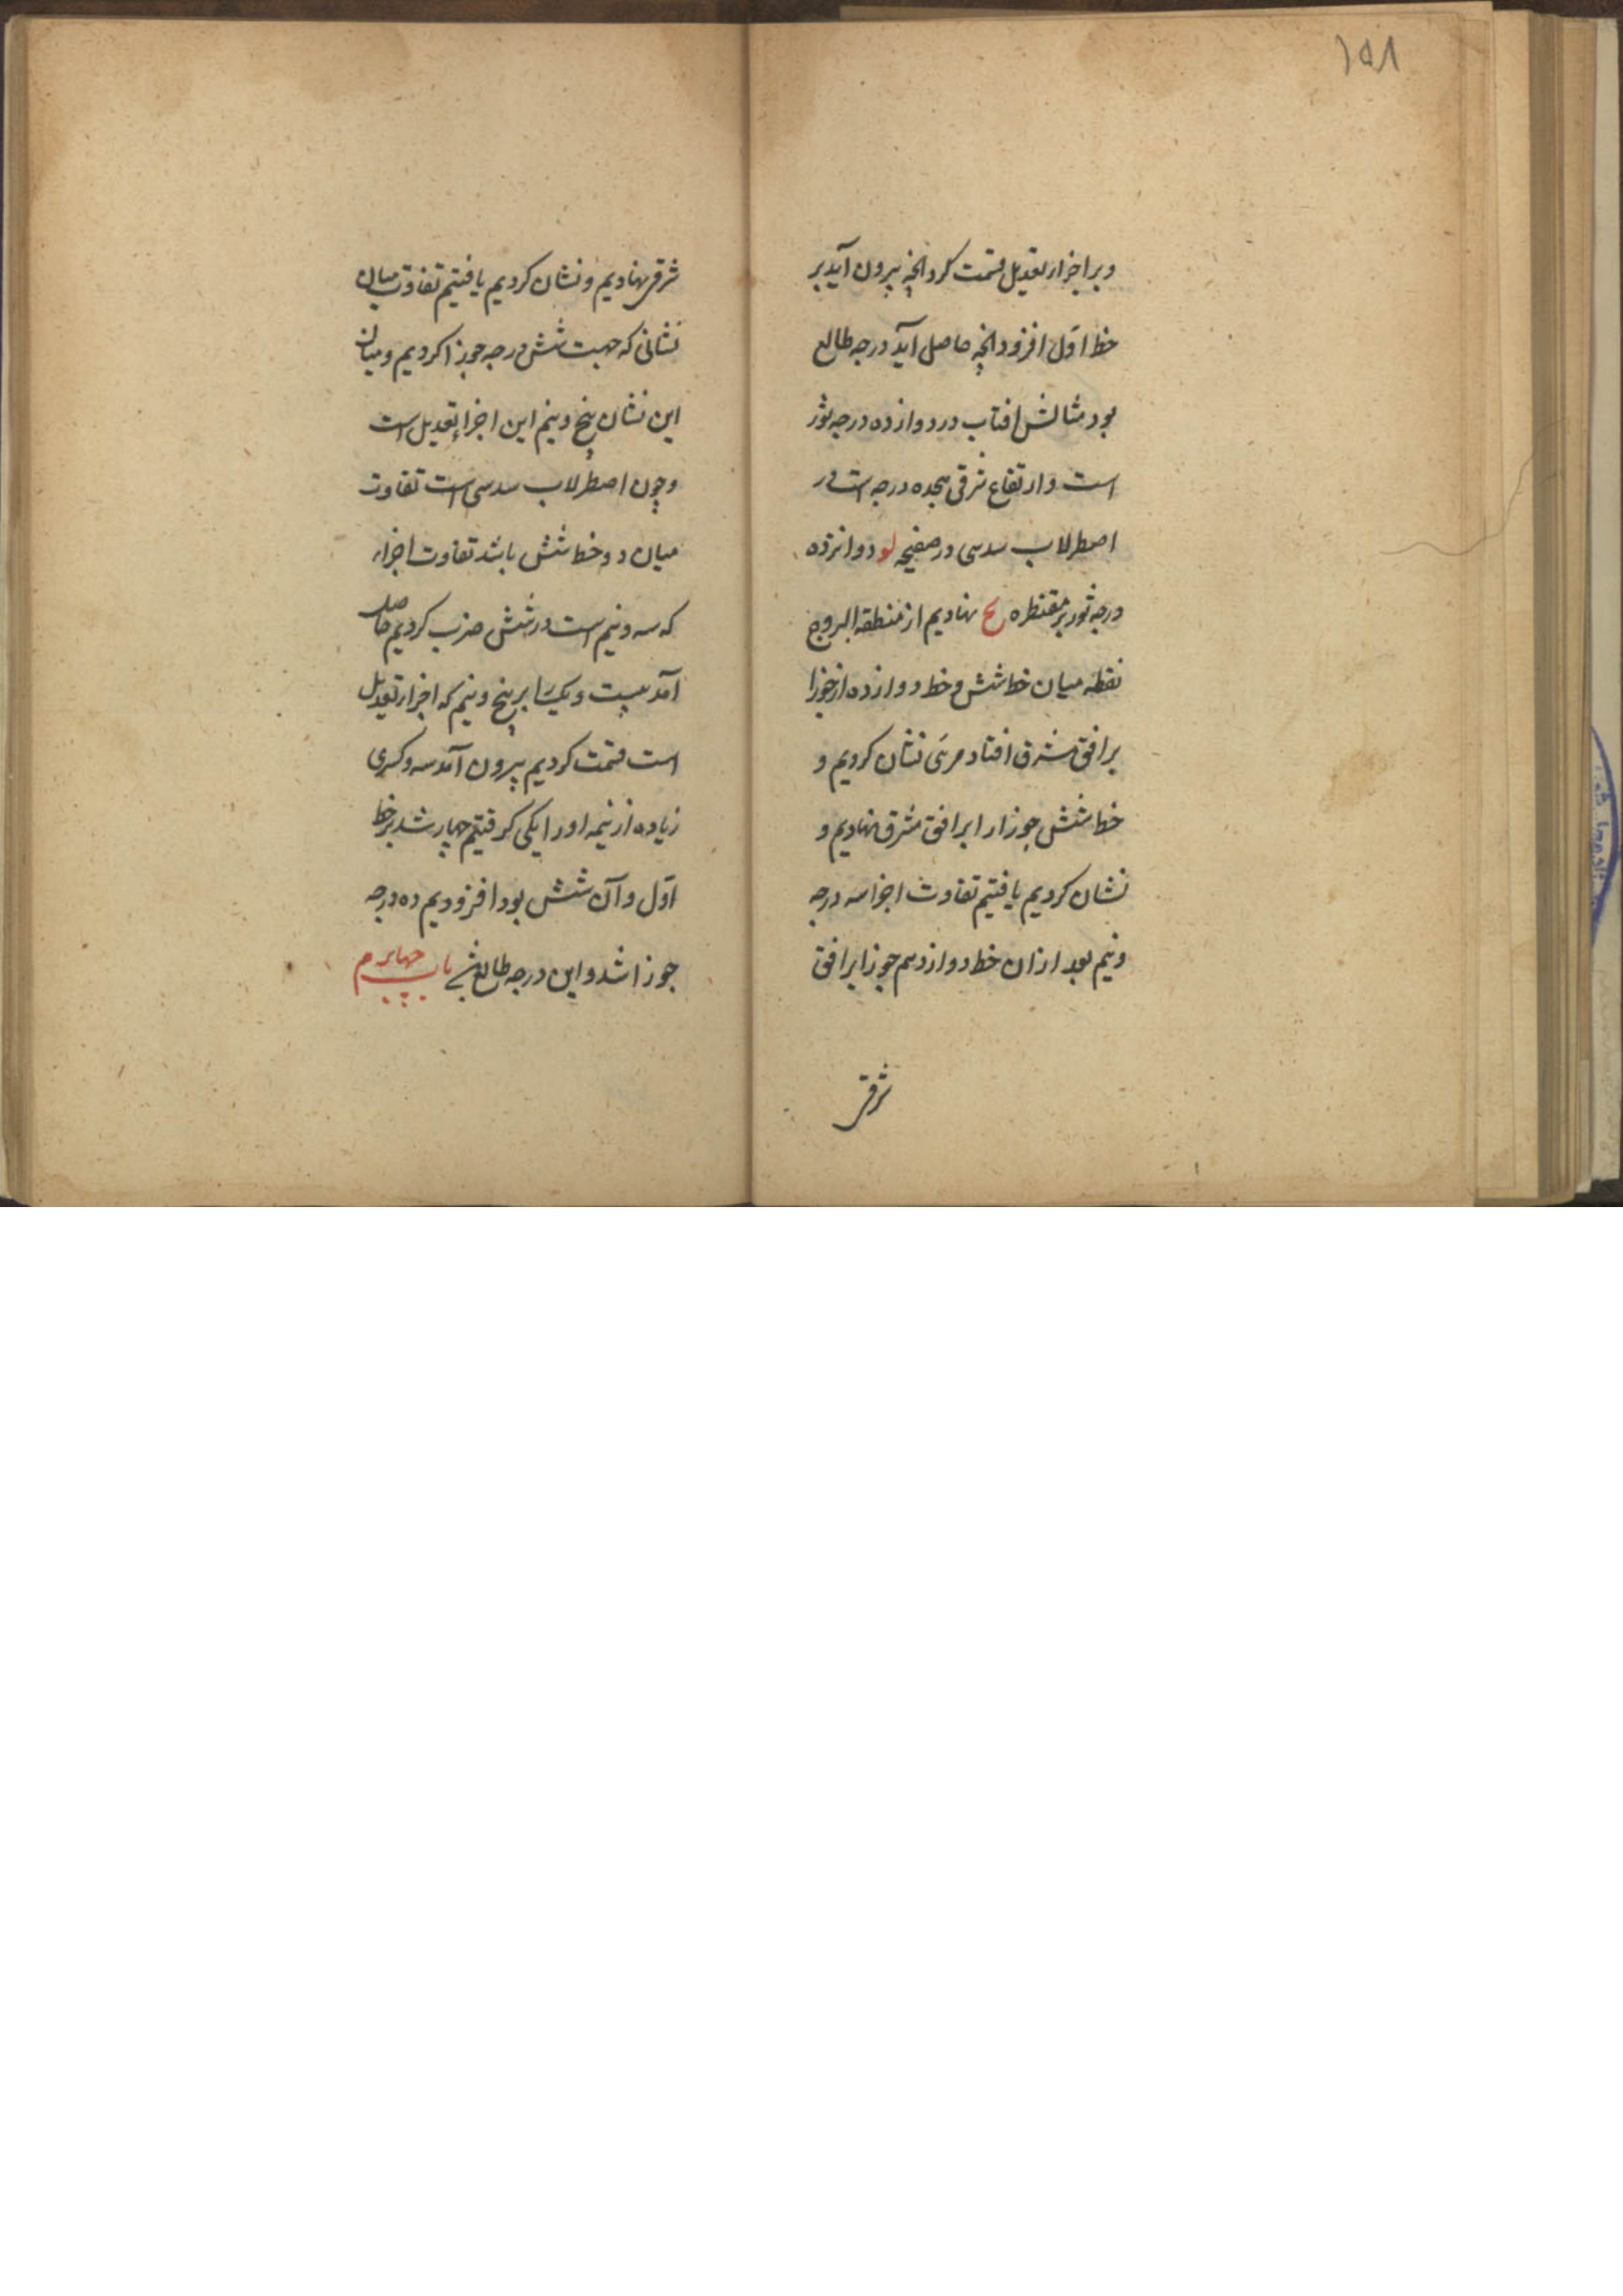 ۱۵۸
و بر اجزاء تعدیل قسمت کرد انچه بیرون آید بر
خط اول افزود انچه حاصل آید درجه طالع
بود مثالش افتاب در دوازده درجه ثور
است و ارتفاع شرقی هجده درجه است در
اصطرلاب سدسی در صفیحه لو دوازده
درجه ثور بر مقنطره یح نهادیم از منطقه البروج
نقطه میان خط شش و خط دوازده از جوزا
بر افق مشرق افتاد مری نشان کردیم و
خط شش جوزا را بر افق مشرق نهادیم و
نشان کردیم یافتیم تفاوت اجزا سه درجه
و نیم بعد ازان خط دوازدهم جوزا بر افق
شرقی
شرقی نهادیم و نشان کردیم یافتیم تفاوت میان
نشانی که جهت شش درجه جوزا کردیم و میان
این نشان پنج و نیم این اجزاء تعدیل است
و چون اصطرلاب سدسی است تفاوت
میان دو خط شش باشد تفاوت اجزاء
که سه و نیم است در شش ضرب کردیم حاصل
آمد بیست و یک را بر پنج و نیم که اجزاء تعدیل
است قسمت کردیم بیرون آمد سه و کسری
زیاده از نیمه اورا یکی کرفتیم چهار شد بر خط
اول و آن شش بود افزودیم ده درجه
جوزا شد و این درجه طالع است باب چهارم